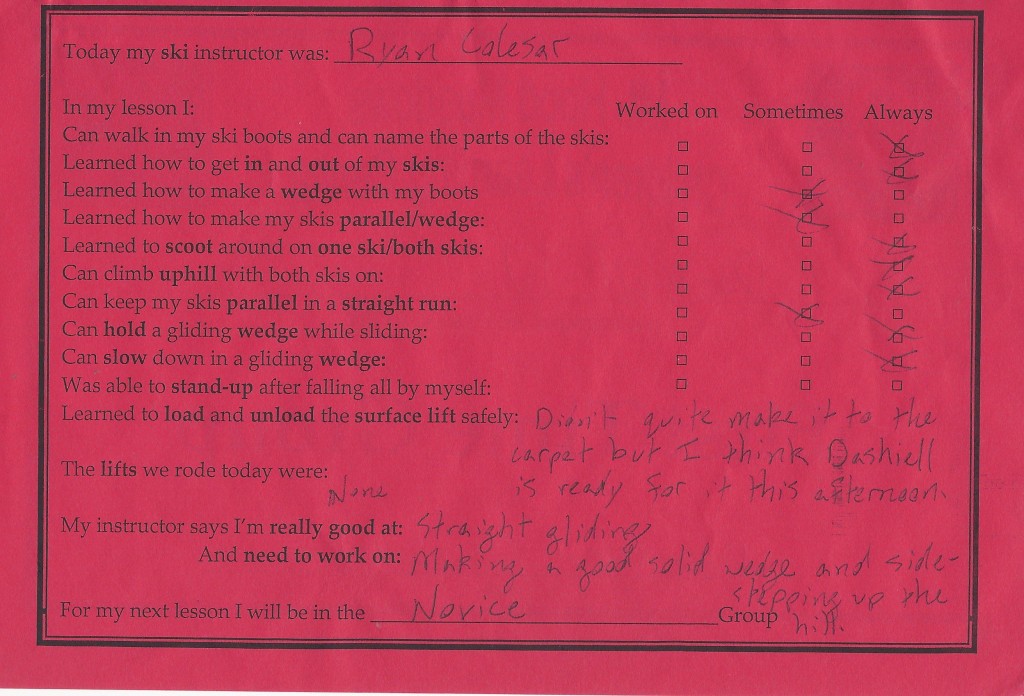 Today my ski instructor was: Ryan Calesar
In my lesson I: Worked on Sometimes Always
Can walk in my ski boots and can name the parts of the skis:
Learned how to get in and out of my skis:
Learned how to make a wedge with my boots
Learned how to make my skis parallel/wedge:
Learned to scoot around on one ski/both skis:
Can climb uphill with both skis on:
Can keep my skis parallel in a straight run:
Can hold a gliding wedge while sliding:
Can slow down in a gliding wedge:
Was able to stand-up after falling all by myself:
Learned to load and unload the surface lift safely: Didn't quite make it to the
carpet but I think Dashiell
is ready for it this afternoon.
The lifts we rode today were:
None
My instructor says I'm really good at: Straight gliding
And need to work on: Making a good solid wedge and side-
stepping up the
hill.
For my next lesson I will be in the Novice Group